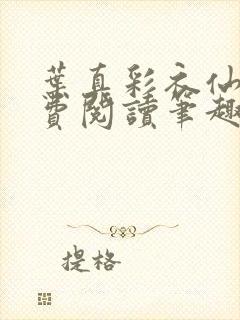 葉真彩衣仙
費閱讀筆趣
提格